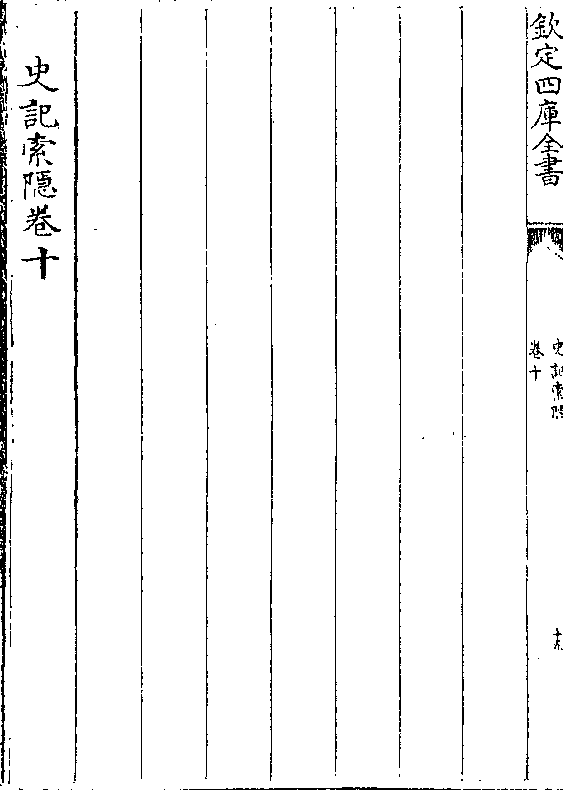 欽定四庫全書
史記索隱
卷十
史記索隱卷十